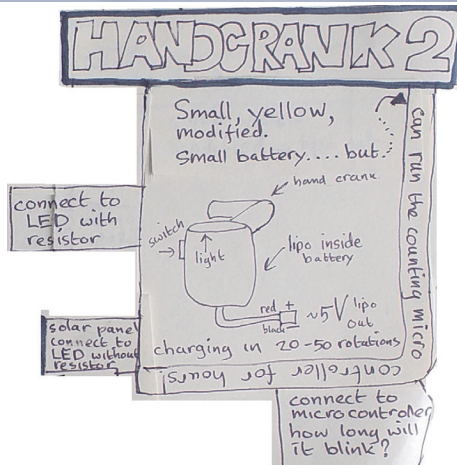 HANDCRANK 2
Small, yellow,
modified.
Small battery.... but
can run the counting micro
controller for hours
hand crank
switch
light
lipo inside
battery
red +
black -
~5V lipo
out
charging in 20-50 rotations
connect to
LED with
resistor
solar panel
connect to
LED without
resistor
connect to
microcontroller
how long will
it blink?